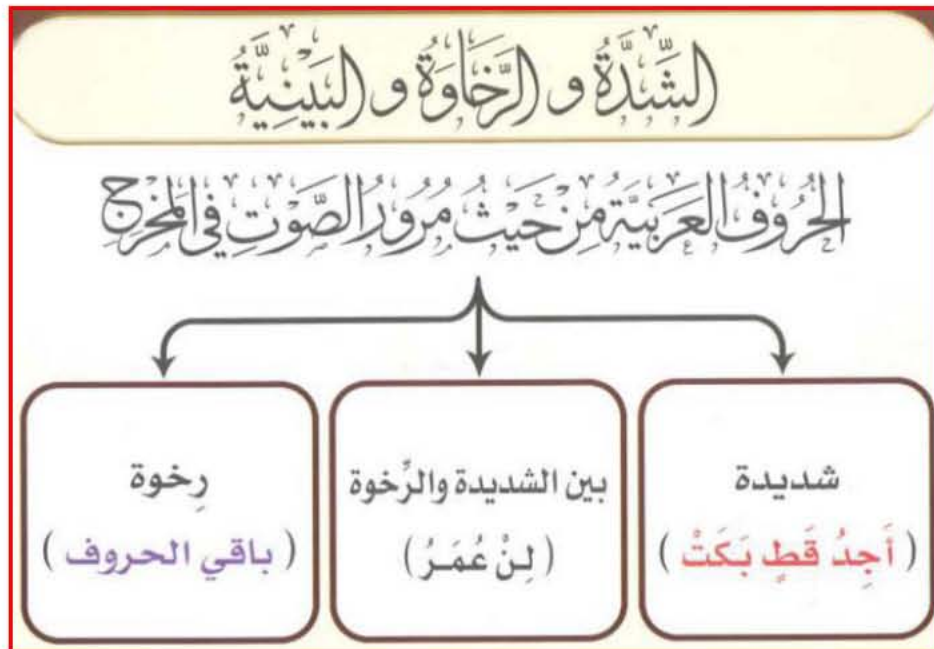 الشِّدَّةُ و الرَّخَاوَةُ و البَيْنِيَّةُ
الحُرُوفُ العَرَبِيَّةُ مِنْ حَيْثُ مُرُورُ الصَّوْتِ فِي المَخْرَجِ
شديدة
( أَجِدُ قَطٍ بَكَتْ )
بين الشديدة والرِّخوة
( لِنْ عُمَرُ )
رِخوة
( باقي الحروف )